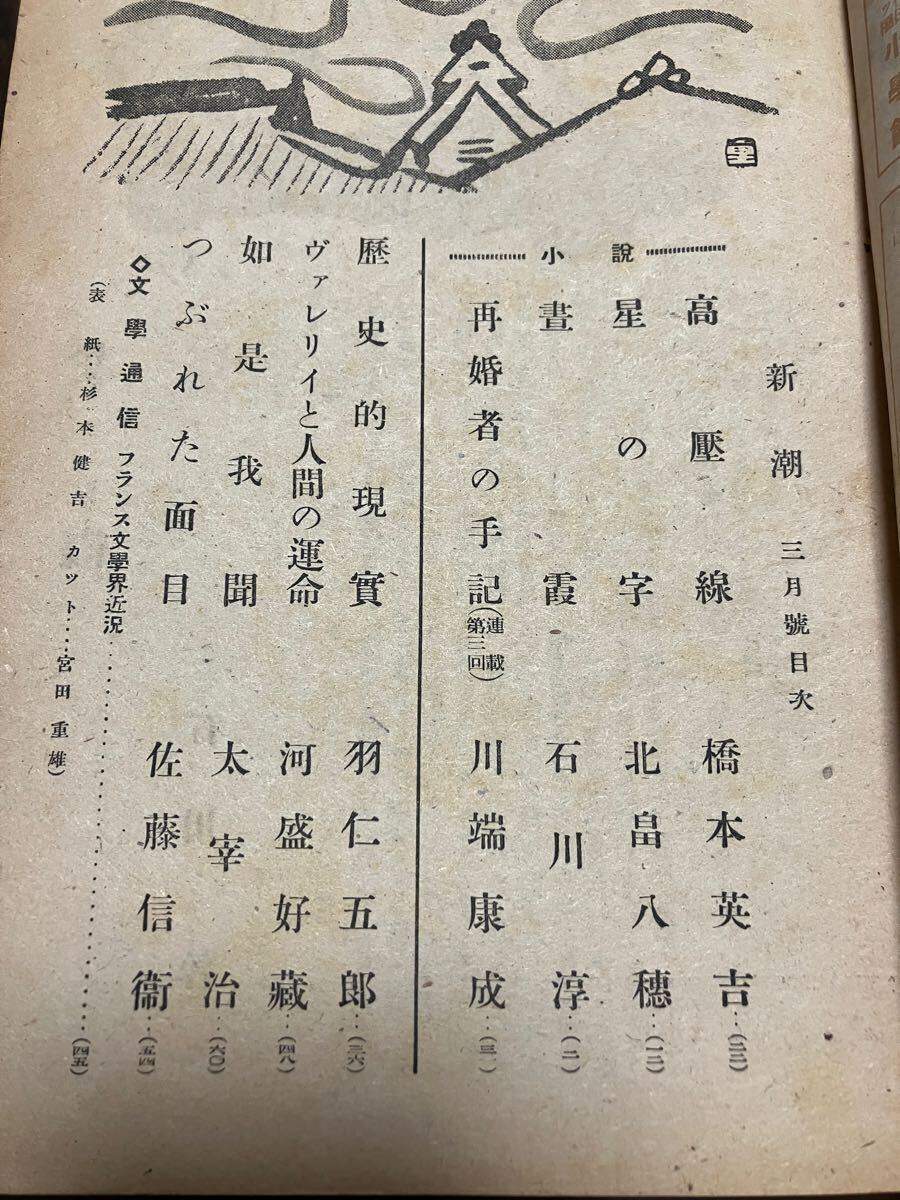 新潮 三月號目次
高壓線 橋本英吉…(二三)
星の字 北畠八穗…(一二)
晝霞 石川淳…(二)
再婚者の手記(連載第三回) 川端康成…(三一)
小說
歷史的現實 羽仁五郎…(三六)
ヴァレリイと人間の運命 河盛好藏…(四八)
如是我聞 太宰治…(六〇)
つぶれた面目 佐藤信衞…(五四)
◇文學通信 フランス文學界近況…(四五)
(表紙…杉本健吉 カット…宮田重雄)